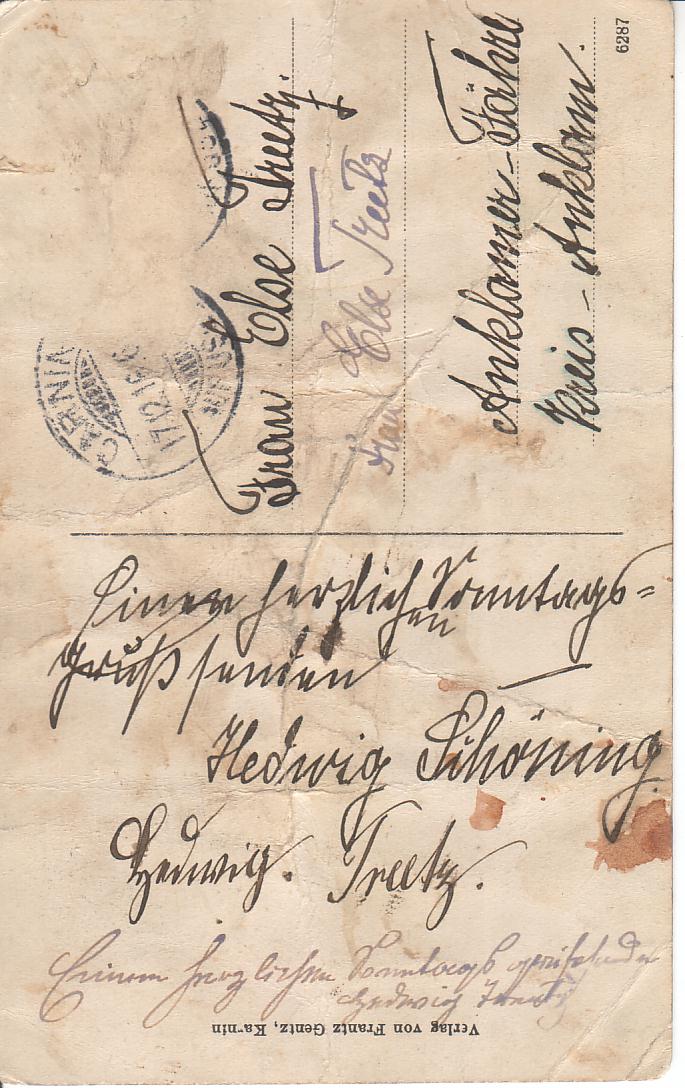 CARNIN
17.12.16.
6287
Frau Else Treetz.
Frau Else Treetz
Anklamer-Fähre
Kreis-Anklam.
Einen herzlichen Sonntags=
gruß senden
Hedwig Schöning
Hedwig. Treetz.
Einen herzlichen Sonntags
Hedwig Treetz
Verlag von Frantz Gentz, Karnin